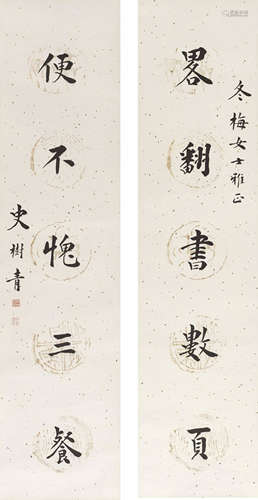 冬梅女士雅正
畧翻書數頁
便不愧三餐
史樹青